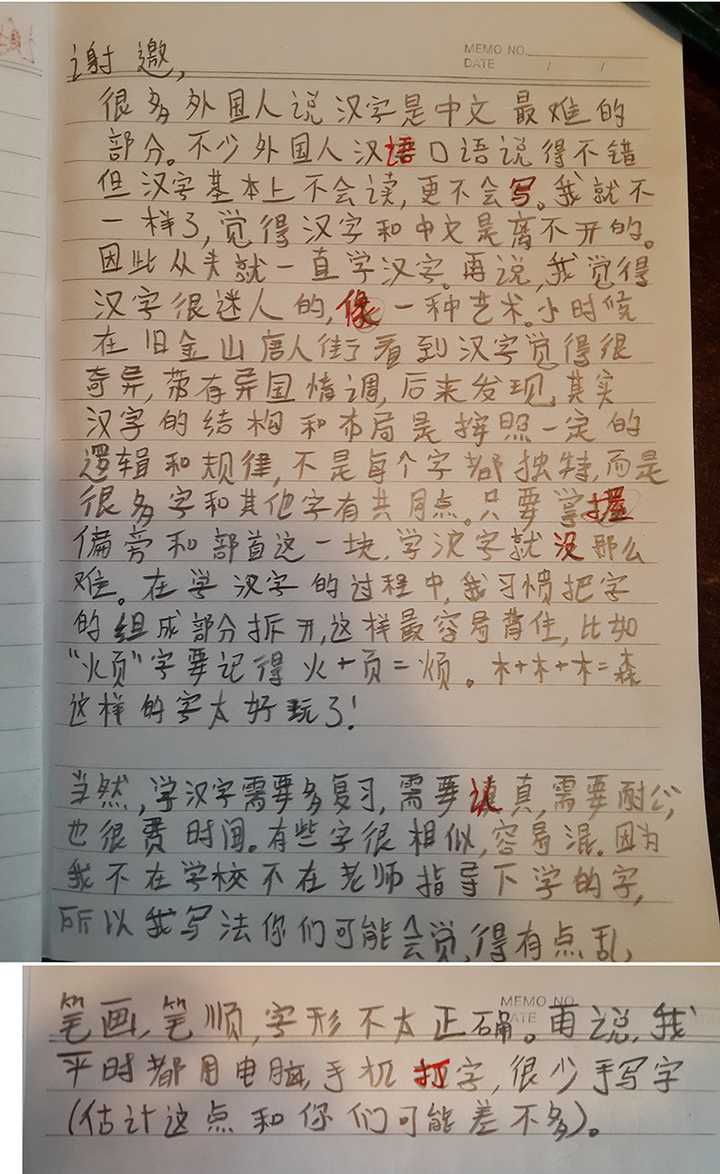 谢邀，
MEMO NO.
DATE / /
很多外国人说汉字是中文最难的
部分。不少外国人汉语口语说得不错
但汉字基本上不会读，更不会写。我就不
一样了，觉得汉字和中文是离不开的。
因此从来就一直学汉字。再说，我觉得
汉字很迷人的，像一种艺术。小时候
在旧金山唐人街看到汉字觉得很
奇异，带有异国情调，后来发现，其实
汉字的结构和布局是按照一定的
逻辑和规律，不是每个字都独特，而是
很多字和其他字有共同点。只要掌握
偏旁和部首这一块，学汉字就没那么
难。在学汉字的过程中，我习惯把字
的组成部分拆开，这样最容易背住，比如
“火页”字要记得 火+页=烦。木+木+木=森
这样的字太好玩了！
当然，学汉字需要多复习，需要认真，需要耐心，
也很费时间。有些字很相似，容易混。因为
我不在学校不在老师指导下学的字，
所以我写法你们可能会觉，得有点乱，
MEMO NO.
DATE
笔画，笔顺，字形不太正确。再说，我
平时都用电脑，手机打字，很少手写字
（估计这点和你们可能差不多）。